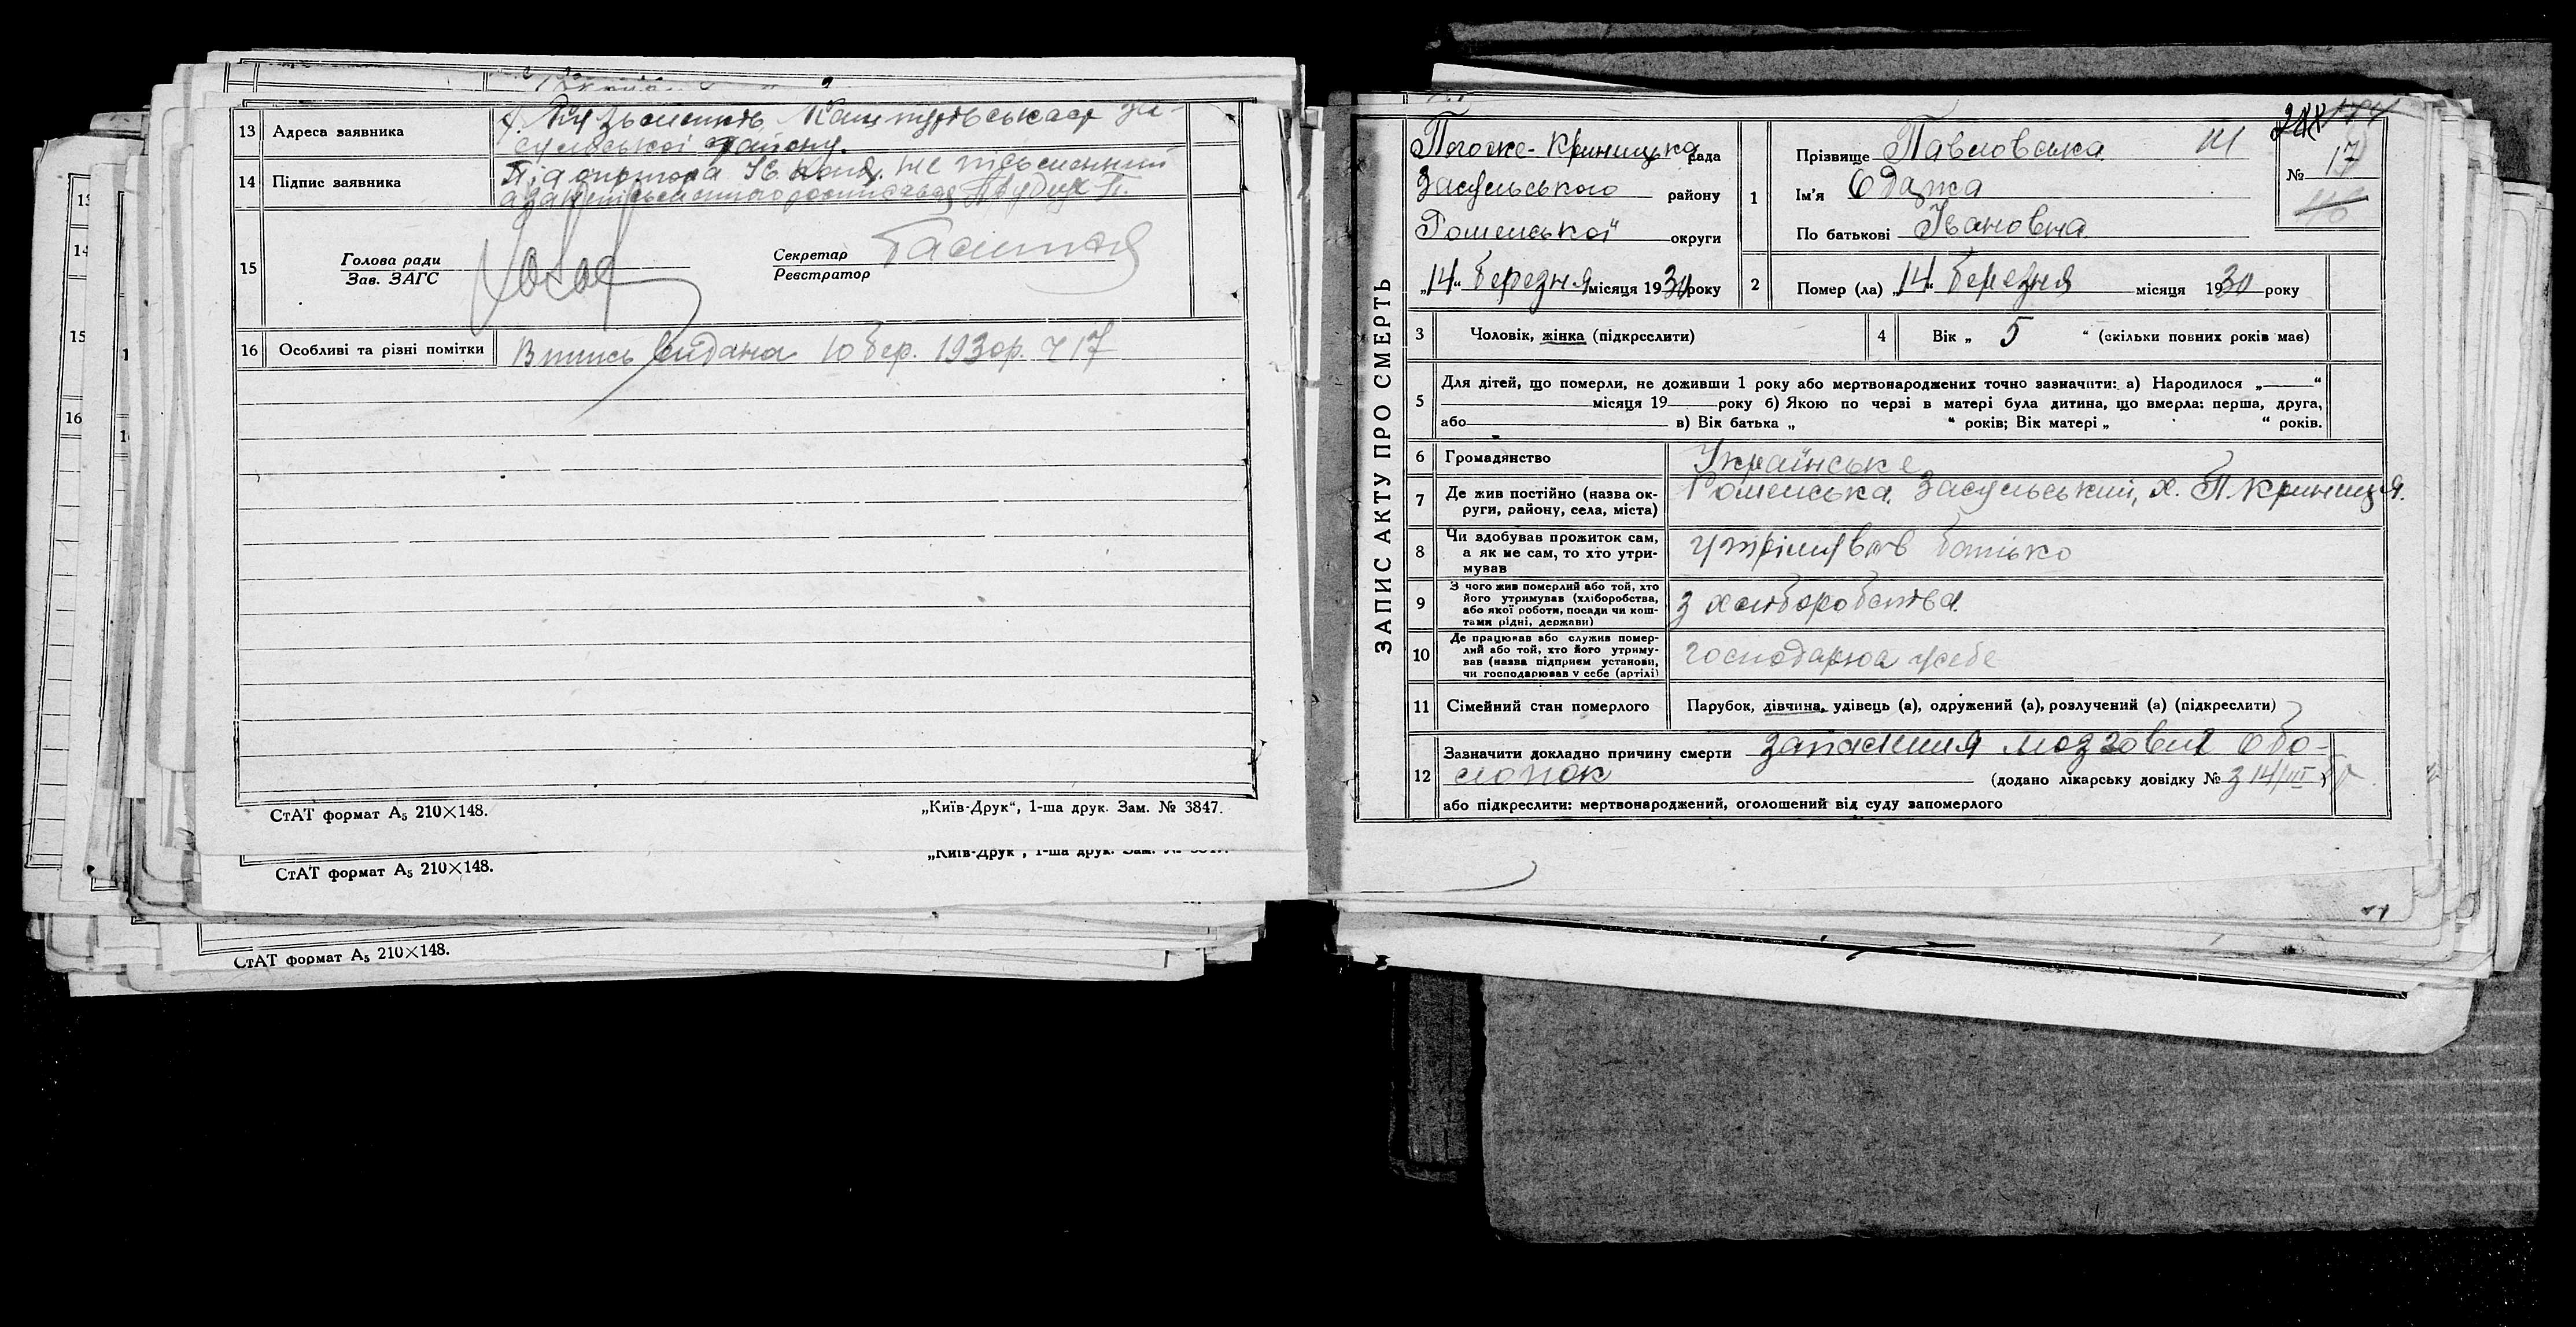 13 Адреса заявника
району.
14 Підпис заявника
не письменний
15 Голова ради
Зав. ЗАГС
Секретар
Реєстратор
16 Особливі та різні помітки Випись видана 10 бер. 1930р. Ч 17
СтАТ формат А₅ 210×148. „Київ-Друк“, 1-ша друк. Зам. № 3847.
СтАТ формат А₅ 210×148.
СтАТ формат А₅ 210×148.
ЗАПИС АКТУ ПРО СМЕРТЬ
Криницька рада
Засульського району
Роменської округи
„14“ березня місяця 1930 року
1 Прізвище Павловська
Ім'я Одарка
По батькові Івановна
№ 17
2 Помер (ла) „14“ березня місяця 1930 року
3 Чоловік, жінка (підкреслити)
4 Вік „ 5 “ (скільки повних років має)
5 Для дітей, що померли, не доживши 1 року або мертвонароджених точно зазначити: а) Народилося „ “
місяця 19 року б) Якою по черзі в матері була дитина, що вмерла: перша, друга,
або в) Вік батька „ “ років; Вік матері „ “ років.
6 Громадянство Українське
7 Де жив постійно (назва ок-
руги, району, села, міста) Роменська Засульський, х. П. Криниця.
8 Чи здобував прожиток сам,
а як не сам, то хто утри-
мував утрімував батько
9 З чого жив померлий або той, хто
його утримував (хліборобства,
або якої роботи, посади чи кош-
тами рідні, держави) з хліборобства
10 Де працював або служив помер-
лий або той, хто його утриму-
вав (назва підприєм установи,
чи господарював у себе (артілі) господарюа усебе
11 Сімейний стан померлого Парубок, дівчина, удівець (а), одружений (а), розлучений (а) (підкреслити)
12 Зазначити докладно причину смерти запаління мозгових обо-
лонок (додано лікарську довідку № з 14/III
або підкреслити: мертвонароджений, оголошений від суду запомерлого